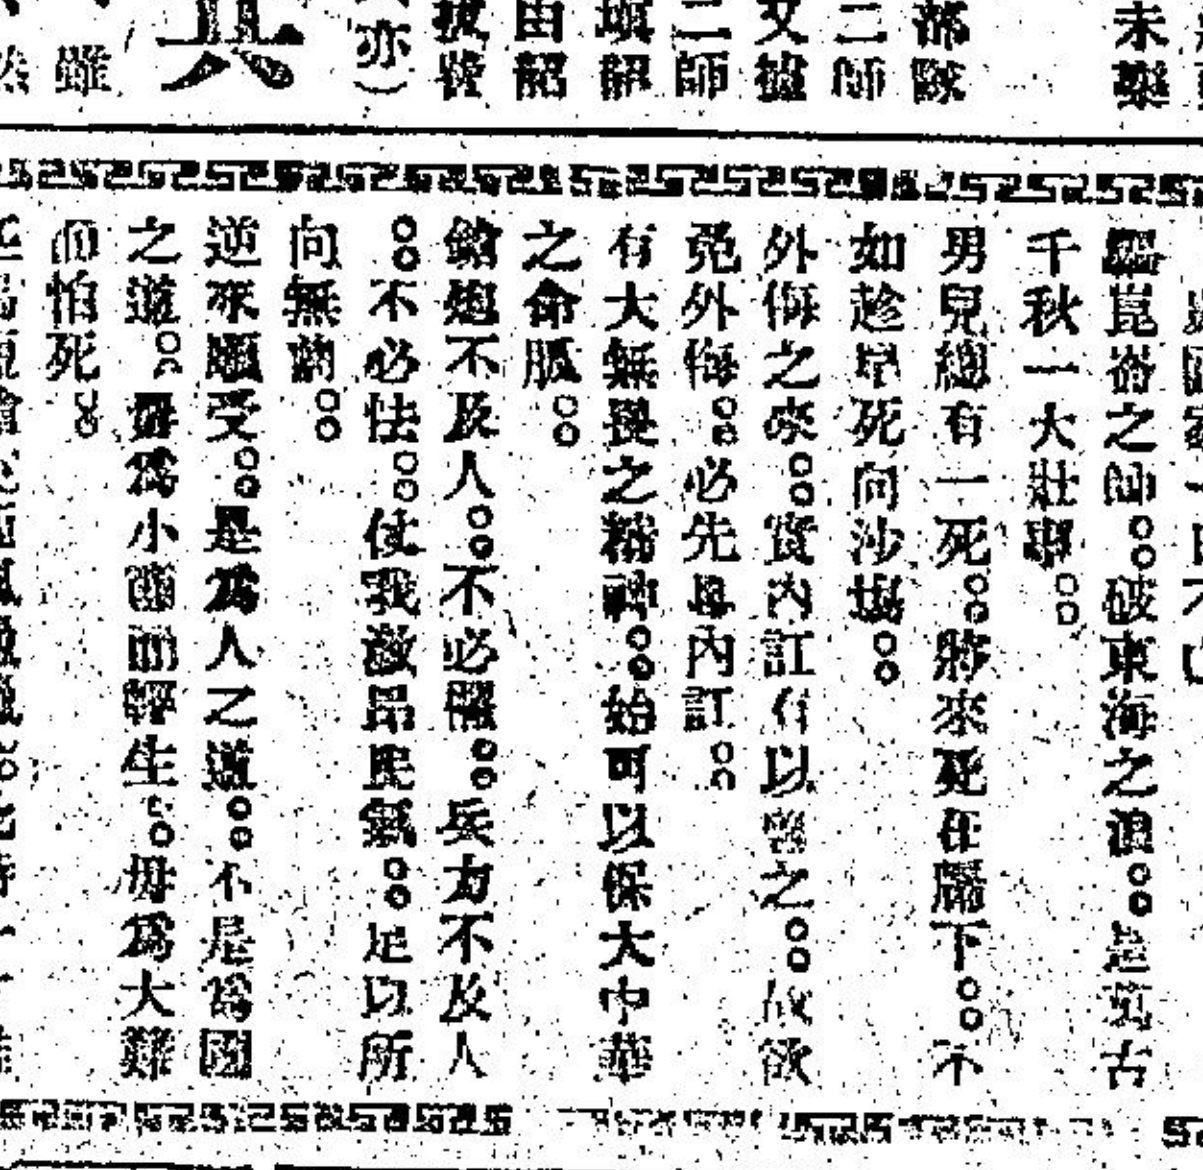 未藥
部隊
二師
又據
二師
塡韶
由韶
亦）
雖
然
驅崑崙之師。。破東海之浪。。是真古
千秋一大壯事。。
男兒總有一死。。將來死在牖下。。不
如趁早死向沙場。。
外侮之來。。實內訌有以召之。。故欲
免外侮。。必先毋內訌。。
有大無畏之精神。。始可以保大中華
之命脈。。
鎗炮不及人。。不必懼。。兵力不及人
。。不必怯。。仗我激昂民氣。。足以所
向無前。。
逆來順受。。是爲人之道。。不是爲國
之道。。毋爲小節而輕生。。毋爲大難
而怕死。。